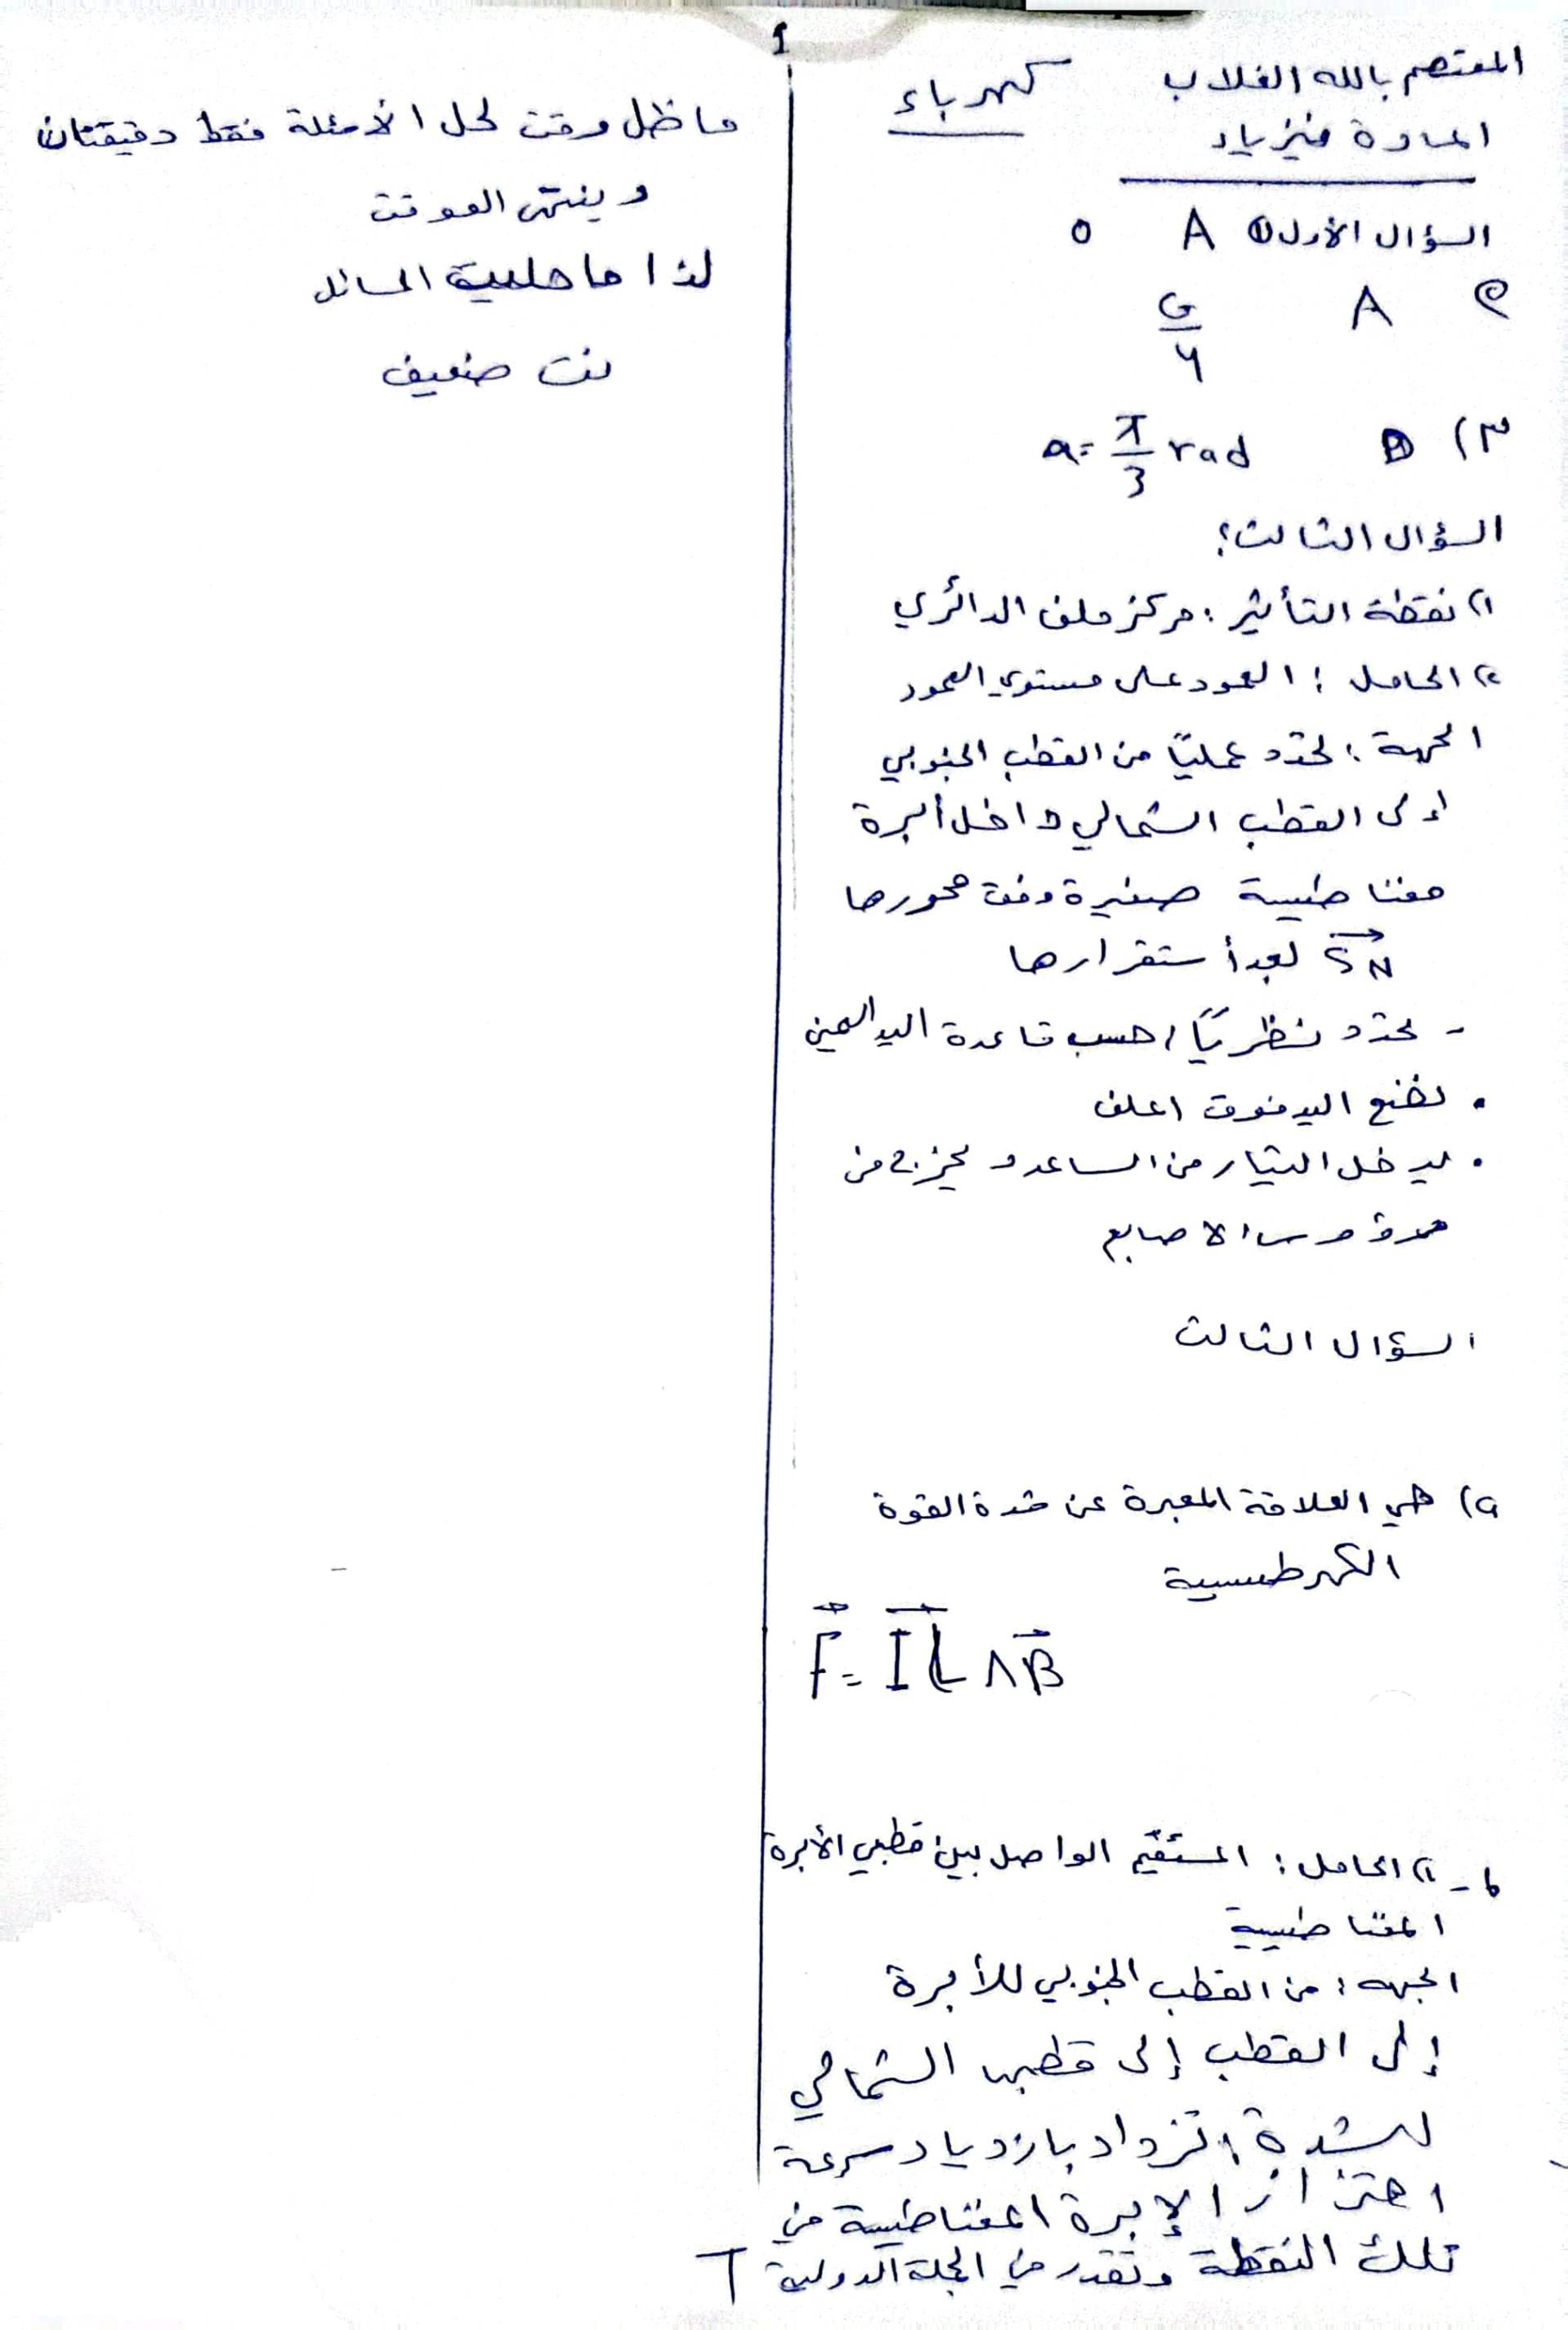 المعتصم بالله الغلاب
كهرباء
المادة فيزياء
السؤال الأول ① A 0
٢ A G/4
٣) D a = π/3 rad
السؤال الثالث؛
١) نقطة التأثير: مركز ملف الدائري
٢) الحامل: العمود على مستوي العمود
الجهة: تحدد عمليًا من القطب الجنوبي
إلى القطب الشمالي داخل أبرة
مغناطيسية صغيرة وفق محورها
SN بعد أستقرارها
- تحدد نظريًا، حسب قاعدة اليد اليمين
• نضع اليد فوق الملف
• يدخل التيار من الساعد و يخرج من
رؤوس الاصابع
السؤال الثالث
a) هي العلاقة المعبرة عن شدة القوة
الكهرطيسية
F = I L ∧ B
b - ١) الحامل: المستقيم الواصل بين قطبي الأبرة
المغناطيسية
الجهه: من القطب الجنوبي للأبرة
إلى القطب إلى قطبها الشمالي
الشدة: تزداد بازدياد سرعة
اهتزاز الإبرة المغناطيسية في
تلك النقطة وتقدر في الجملة الدولية T
ما ظل وقت لحل الأسئلة فقط دقيقتان
و ينتهي الوقت
لذا ما حليت المسائل
نت ضعيف